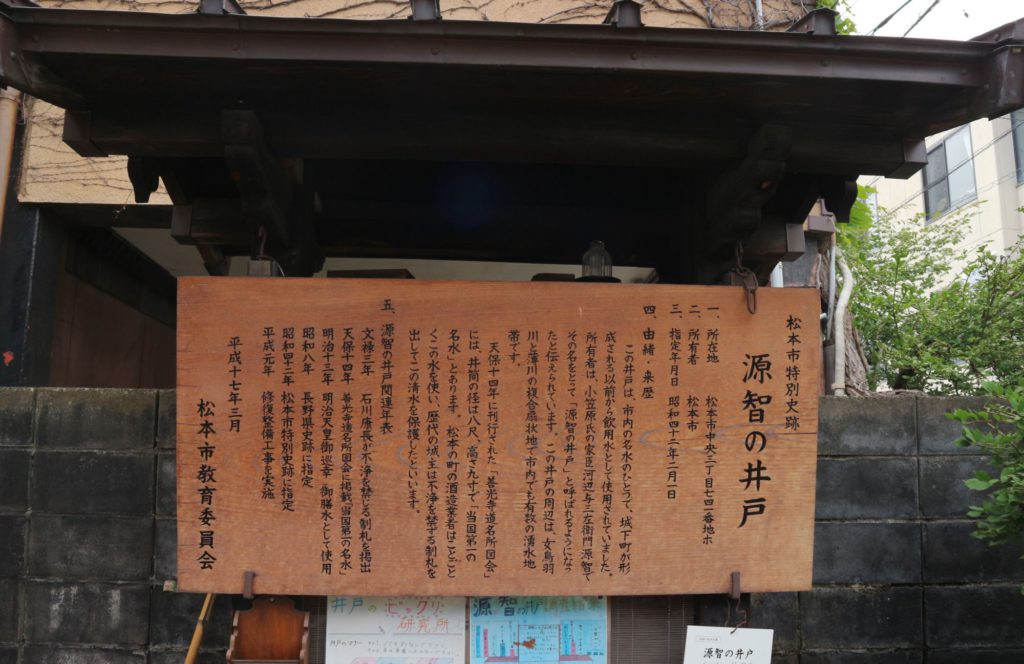 松本市特別史跡
源智の井戸
一、所在地　松本市中央三丁目七四一番地ホ
二、所有者　松本市
三、指定年月日　昭和四十二年二月一日
四、由緒・来歴
この井戸は、市内の名水のひとつで、城下町が形
成される以前から飲用水として使用されていました。
所有者は、小笠原氏の家臣河辺与三左衛門源智で
その名をとって「源智の井戸」と呼ばれるようになっ
たと伝えられています。この井戸の周辺は、女鳥羽
川と薄川の複合扇状地で市内でも有数の湧水地
帯です。
天保十四年に刊行された「善光寺道名所図会」
には、井筒の径は八尺、高さ九寸で「当国第一の
名水」とあります。松本の町の酒造業者はことごと
くこの水を使い、歴代の城主は不浄を禁ずる制札を
出してこの清水を保護したといいます。
五、源智の井戸関連年表
文禄三年　石川康長が不浄を禁じる制札を掲出
天保十四年　善光寺道名所図会に掲載「当国第一の名水」
明治十三年　明治天皇御巡幸　御膳水として使用
昭和八年　長野県史跡に指定
昭和四十二年　松本市特別史跡に指定
平成元年　修復整備工事を実施
平成十七年三月
松本市教育委員会
井戸のビックリ
研究所
井戸のマナー
源智の井戸
源智の井戸